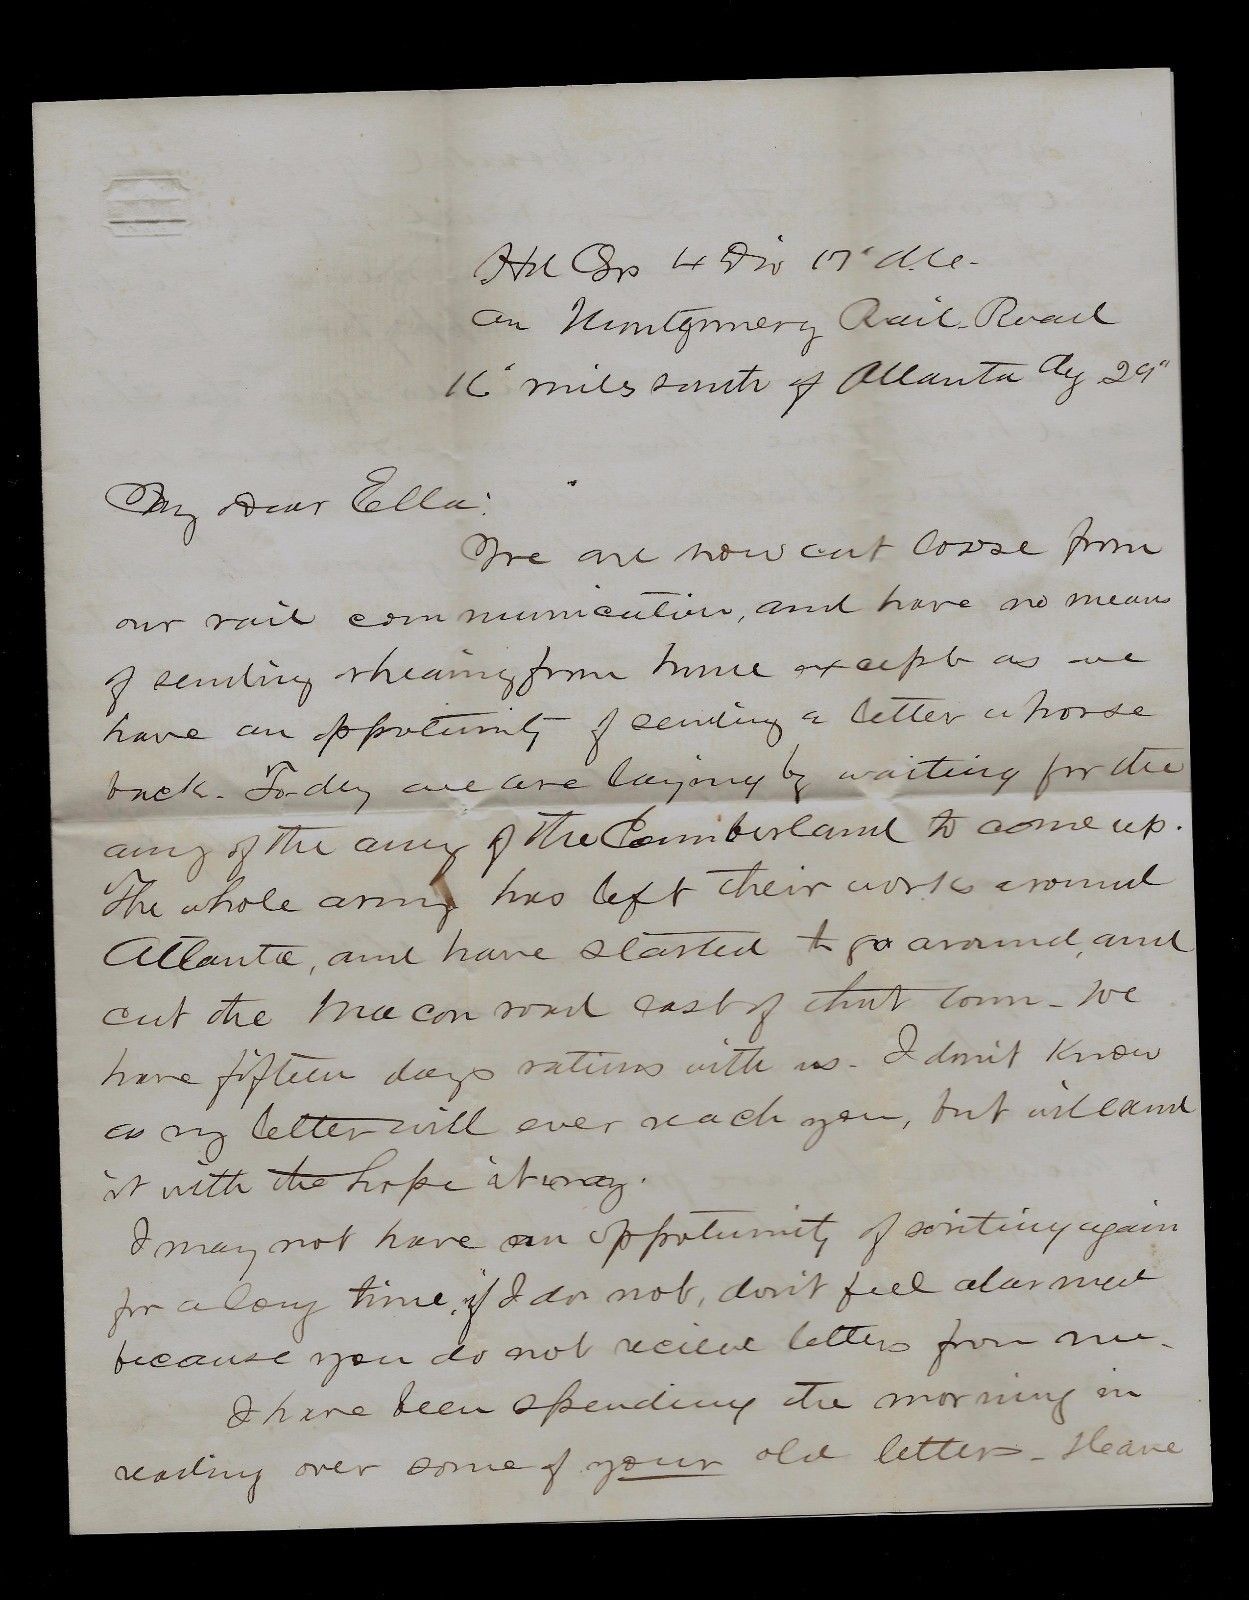 Hd Qrs 4 Div 17" A.C.
on Montgomery Rail-Road
16" miles south of Atlanta Ag 29"
My Dear Ella:
We are now cut loose from
our rail communication, and have no means
of sending & hearing from home except as we
have an opportunity of sending a letter a horse
back. To-day we are laying by waiting for the
army of the army of the Cumberland to come up.
The whole army has left their works around
Atlanta, and have started to go around, and
cut the Macon road east of that town - We
have fifteen days rations with us - I don't know
as my letter will ever reach you, but will send
it with the hope it may.
I may not have an opportunity of writing again
for a long time, if I do not, don't feel alarmed
because you do not recieve letters from me -
I have been spending the morning in
reading over some of your old letters - I leave